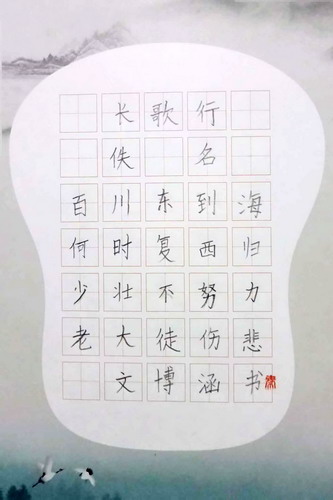 长歌行
佚名
百川东到海
何时复西归
少壮不努力
老大徒伤悲
文博涵书